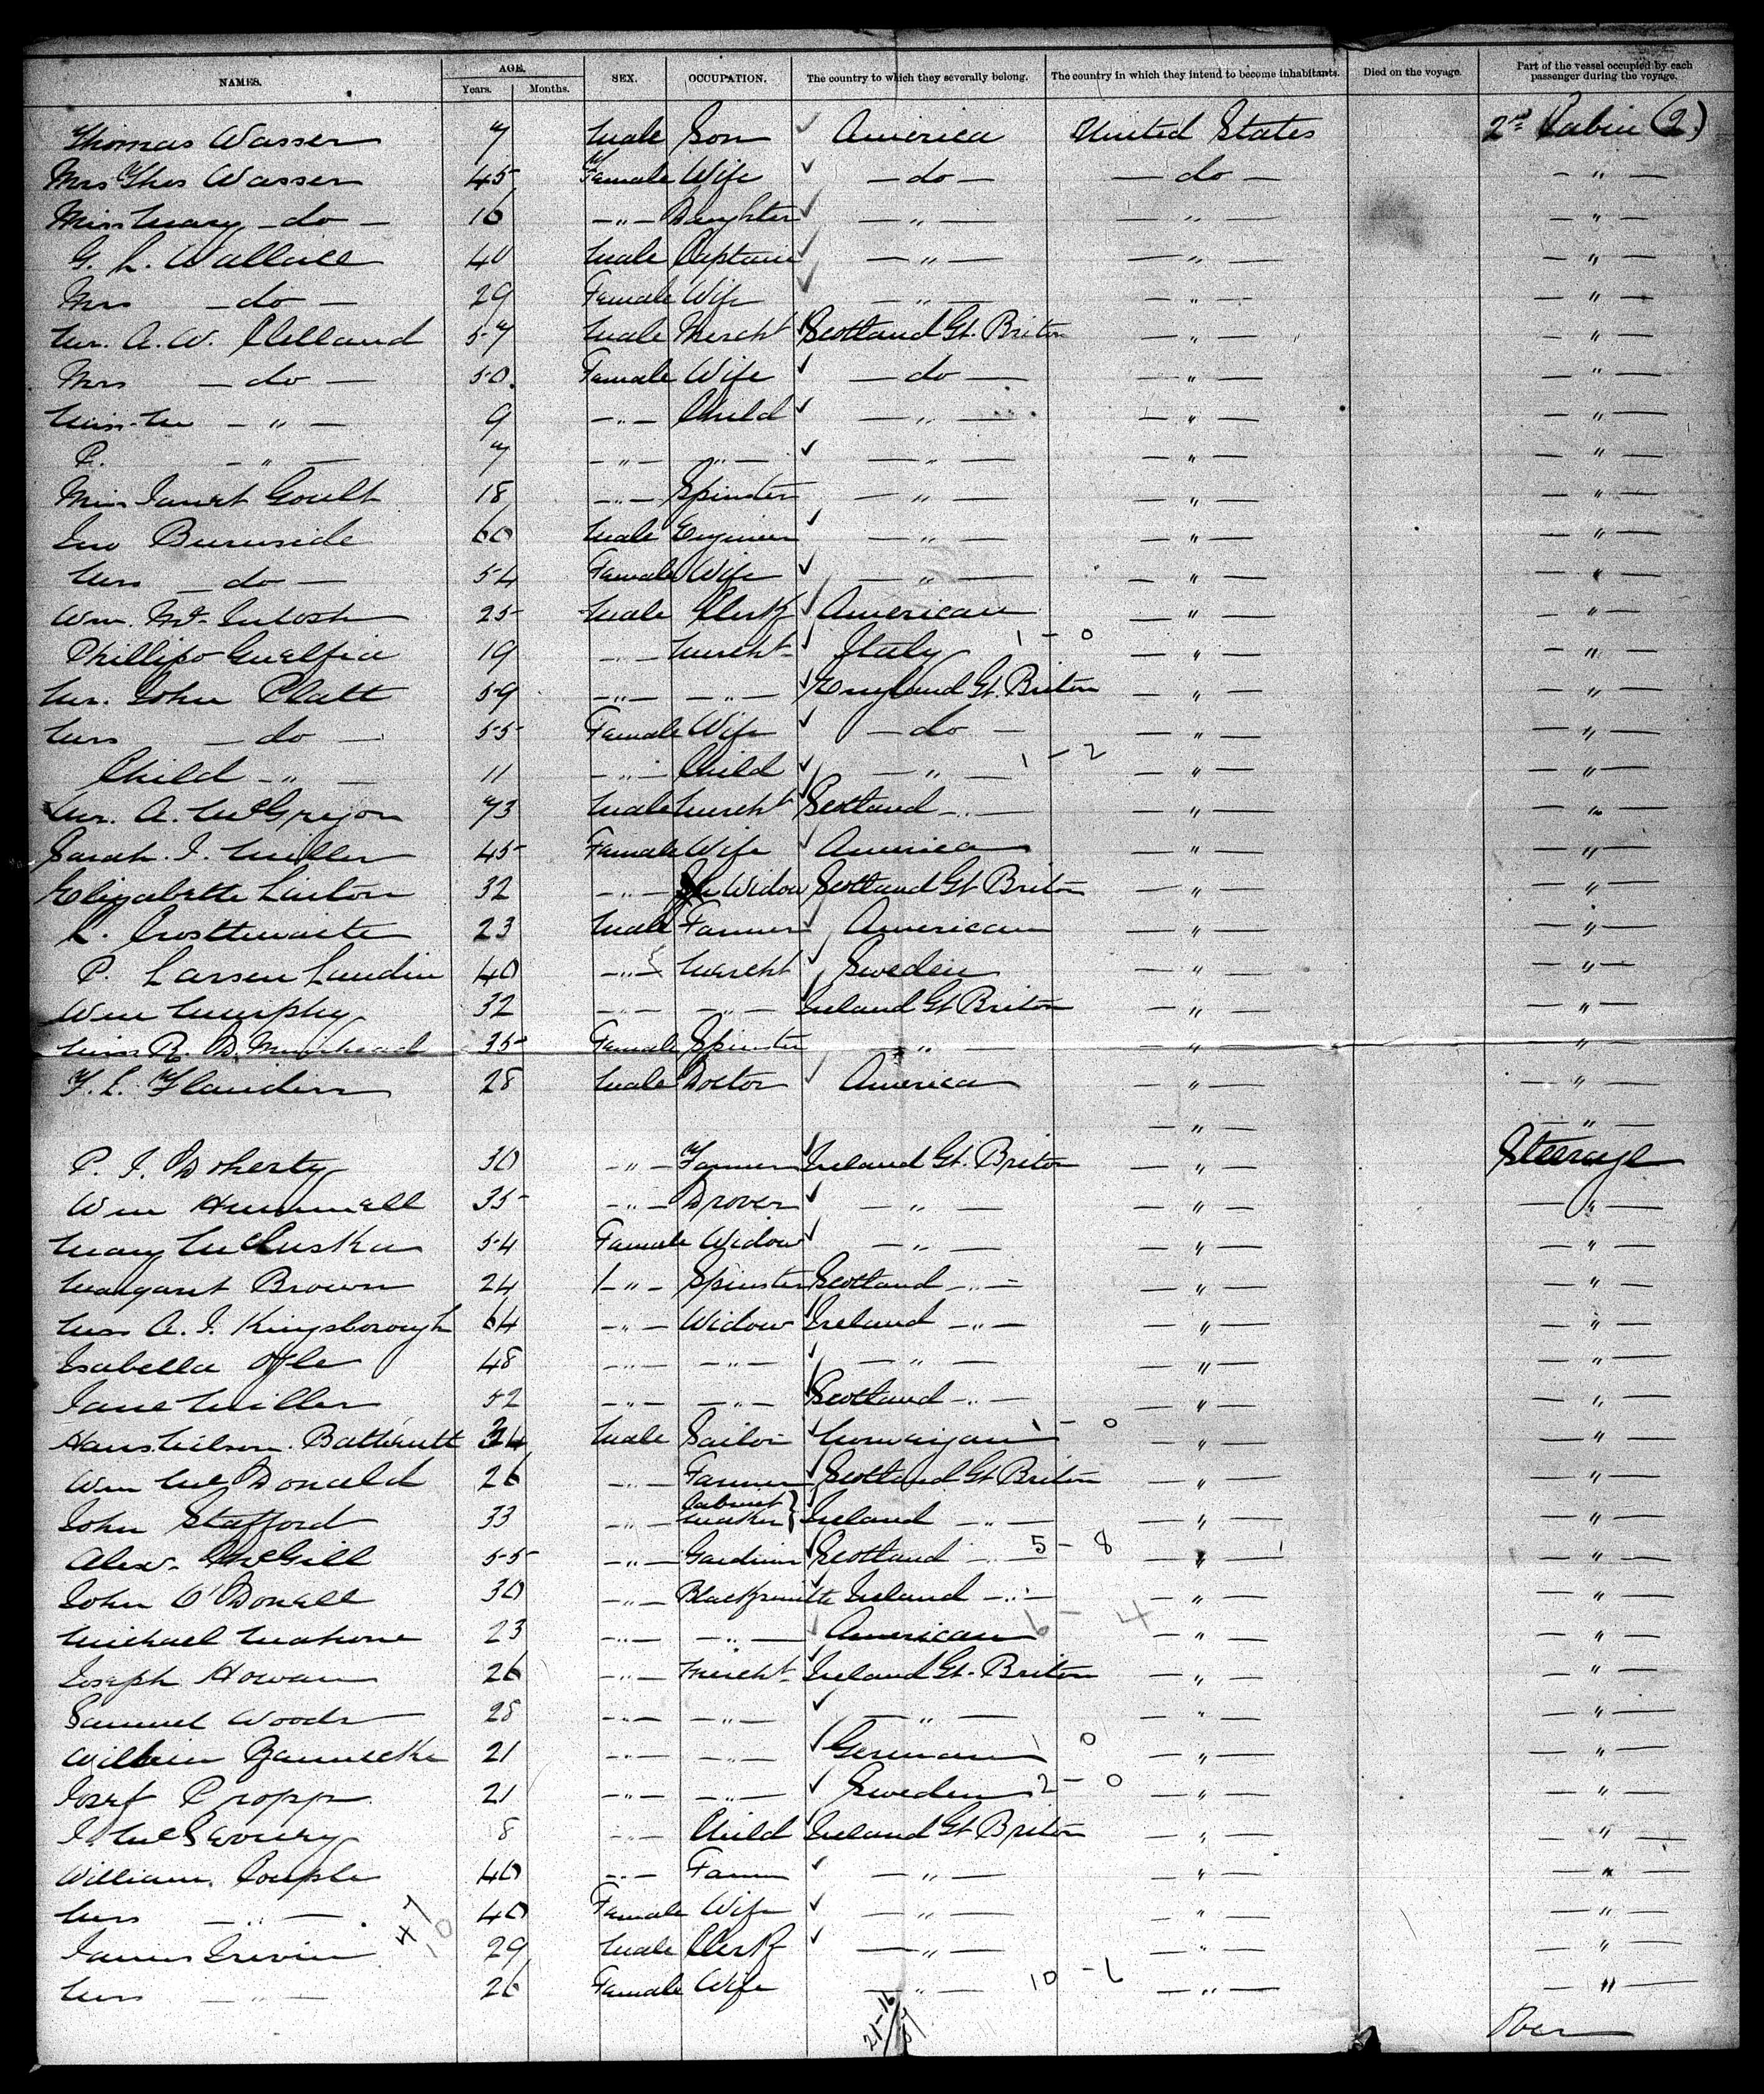 NAMES. AGE. SEX. OCCUPATION. The country to which they severally belong. The country in which they intend to become inhabitants. Died on the voyage. Part of the vessel occupied by each passenger during the voyage.
Years. Months.
Thomas Wasser 7 Male Son America United States 2nd Cabin (2)
Mrs Thos Wasser 45 Female Wife — do — — do — — " —
Miss Mary — do — 16 — " — Daughter — " — — " — — " —
G. L. Wallace 40 Male Captain — " — — " — — " —
Mrs — do — 29 Female Wife — " — — " — — " —
Mr. A. W. Clelland 57 Male Mercht Scotland Gt. Briton — " — — " —
Mrs — do — 50 Female Wife — do — — " — — " —
Miss M — " — 9 — " — Child — " — — " — — " —
— " — 7 — " — — " — — " — — " — — " —
Miss Janet Goult 18 — " — Spinster — " — — " — — " —
Jno Burnside 60 Male Engineer — " — — " — — " —
Mrs — do — 54 Female Wife — " — — " — — " —
Wm. McIntosh 25 Male Clerk American — " — — " —
Phillipo 19 — " — Mercht Italy 1 - 0 — " — — " —
Mr. John Platt 59 — " — — " — England Gt. Briton — " — — " —
Mrs — do — 55 Female Wife — do — — " — — " —
Child — " — 11 — " — Child — " — 1 - 2 — " — — " —
Mr. A. McGregor 73 Male Mercht Scotland — " — — " — — " —
Sarah. J. Miller 45 Female Wife America — " — — " —
Elizabeth Linton 32 — " — Widow Scotland Gt Briton — " — — " —
Crosthwaite 23 Male Farmer American — " — — " —
P. Larsen Lundin 40 — " — Mercht Sweden — " — — " —
Wm Murphy 32 — " — — " — Ireland Gt Briton — " — — " —
Miss R. D. Muirhead 35 Female Spinster — " — — " — — " —
F. L. Flanders 28 Male Doctor America — " — — " —
— " — — " —
P. J. Doherty 30 — " — Farmer Ireland Gt. Briton — " — Steerage
Wm Hummell 35 — " — Drover — " — — " — — " —
Mary McCluska 54 Female Widow — " — — " — — " —
Margaret Brown 24 — " — Spinster Scotland — " — — " — — " —
Mrs A. J. Kingsborough 64 — " — Widow Ireland — " — — " — — " —
Isabella Ogle 48 — " — — " — — " — — " — — " —
Jane Miller 52 — " — — " — Scotland — " — — " — — " —
Hans Nilson 34 Male Sailor Norwegian 1 - 0 — " — — " —
Wm McDonald 26 — " — Farmer Scotland Gt Briton — " — — " —
John Stafford 33 — " — Cabinet Maker } Ireland — " — — " — — " —
Alex. McGill 55 — " — Gardiner Scotland — " — 5 - 8 — " — — " —
John O'Donell 30 — " — Blacksmith Ireland — " — — " — — " —
Michael Mahone 23 — " — — " — American 6 - 4 — " — — " —
Joseph Howan 26 — " — Mercht Ireland Gt. Briton — " — — " —
Samuel Woods 28 — " — — " — — " — — " — — " —
21 — " — — " — German 1 0 — " — — " —
Josef Cropp 21 — " — — " — Sweden 2 - 0 — " — — " —
8 — " — Child Ireland Gt Briton — " — — " —
William. Couple 40 — " — Farm — " — — " — — " —
Mrs — " — 40 Female Wife — " — — " — — " —
47
10
James Irvin 29 Male Clerk — " — — " — — " —
Mrs — " — 26 Female Wife — " — 10 - 6 — " — — " —
21-16
Over